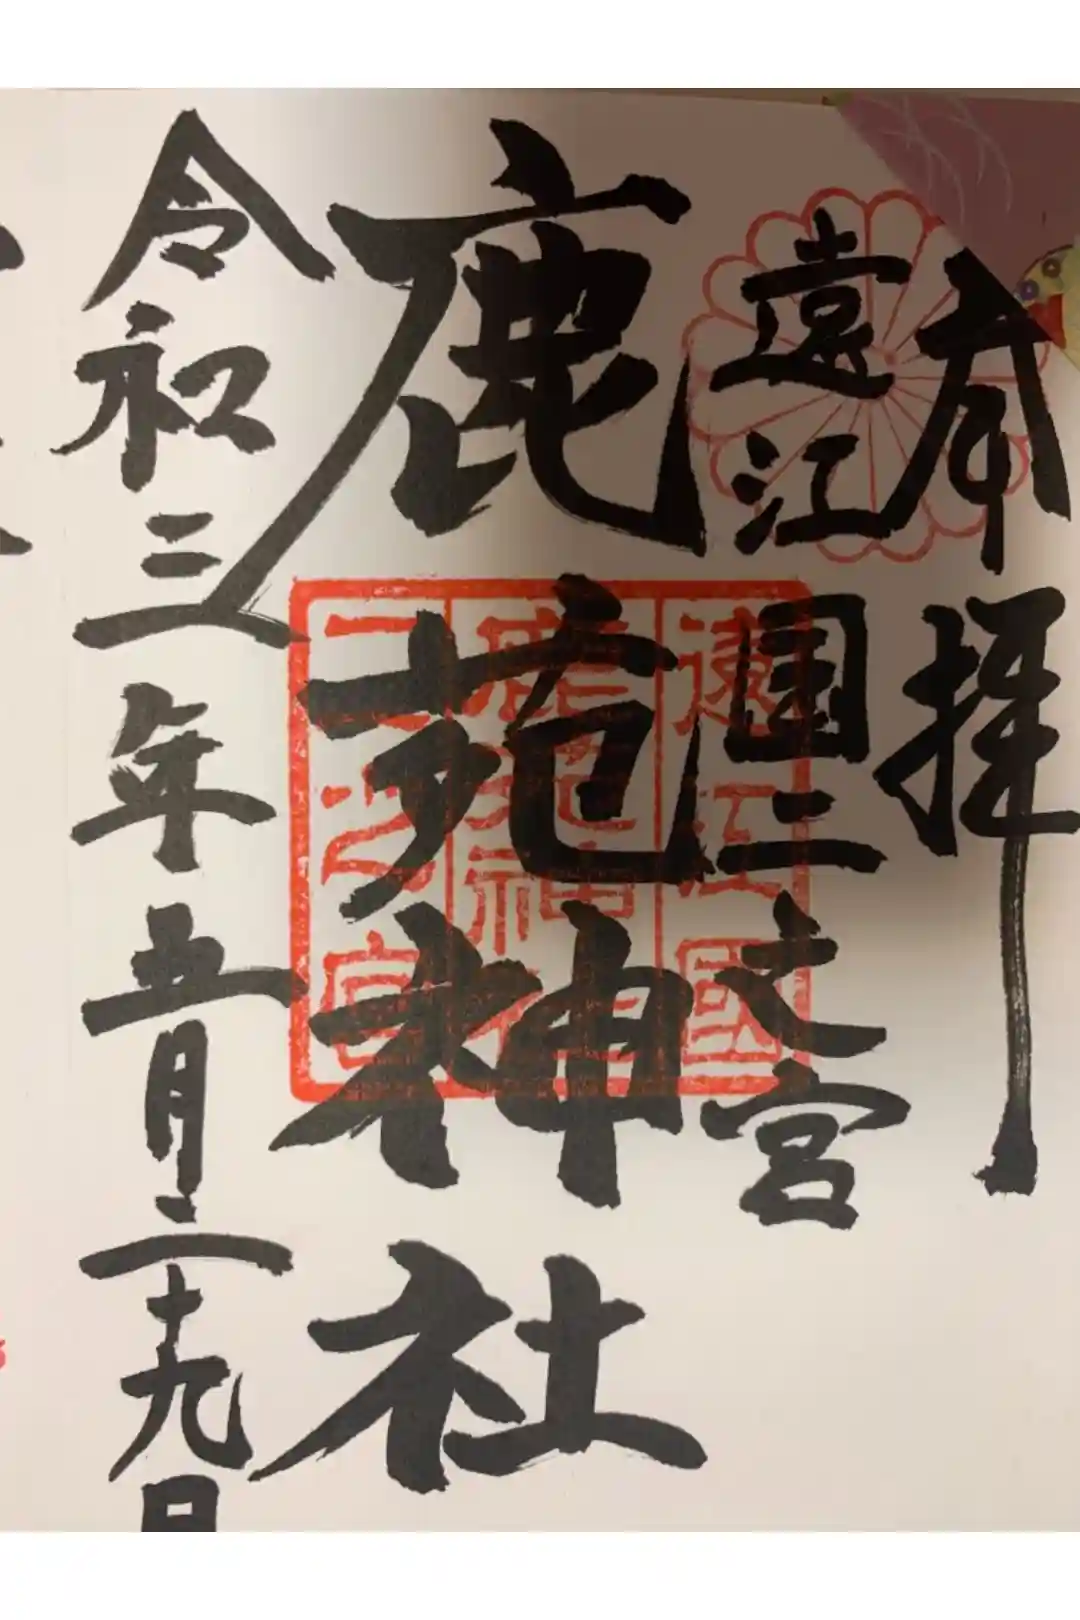 奉拝
遠江国二之宮
鹿苑神社
令和三年五月二十九日
遠江國
鹿苑神社
二之宮